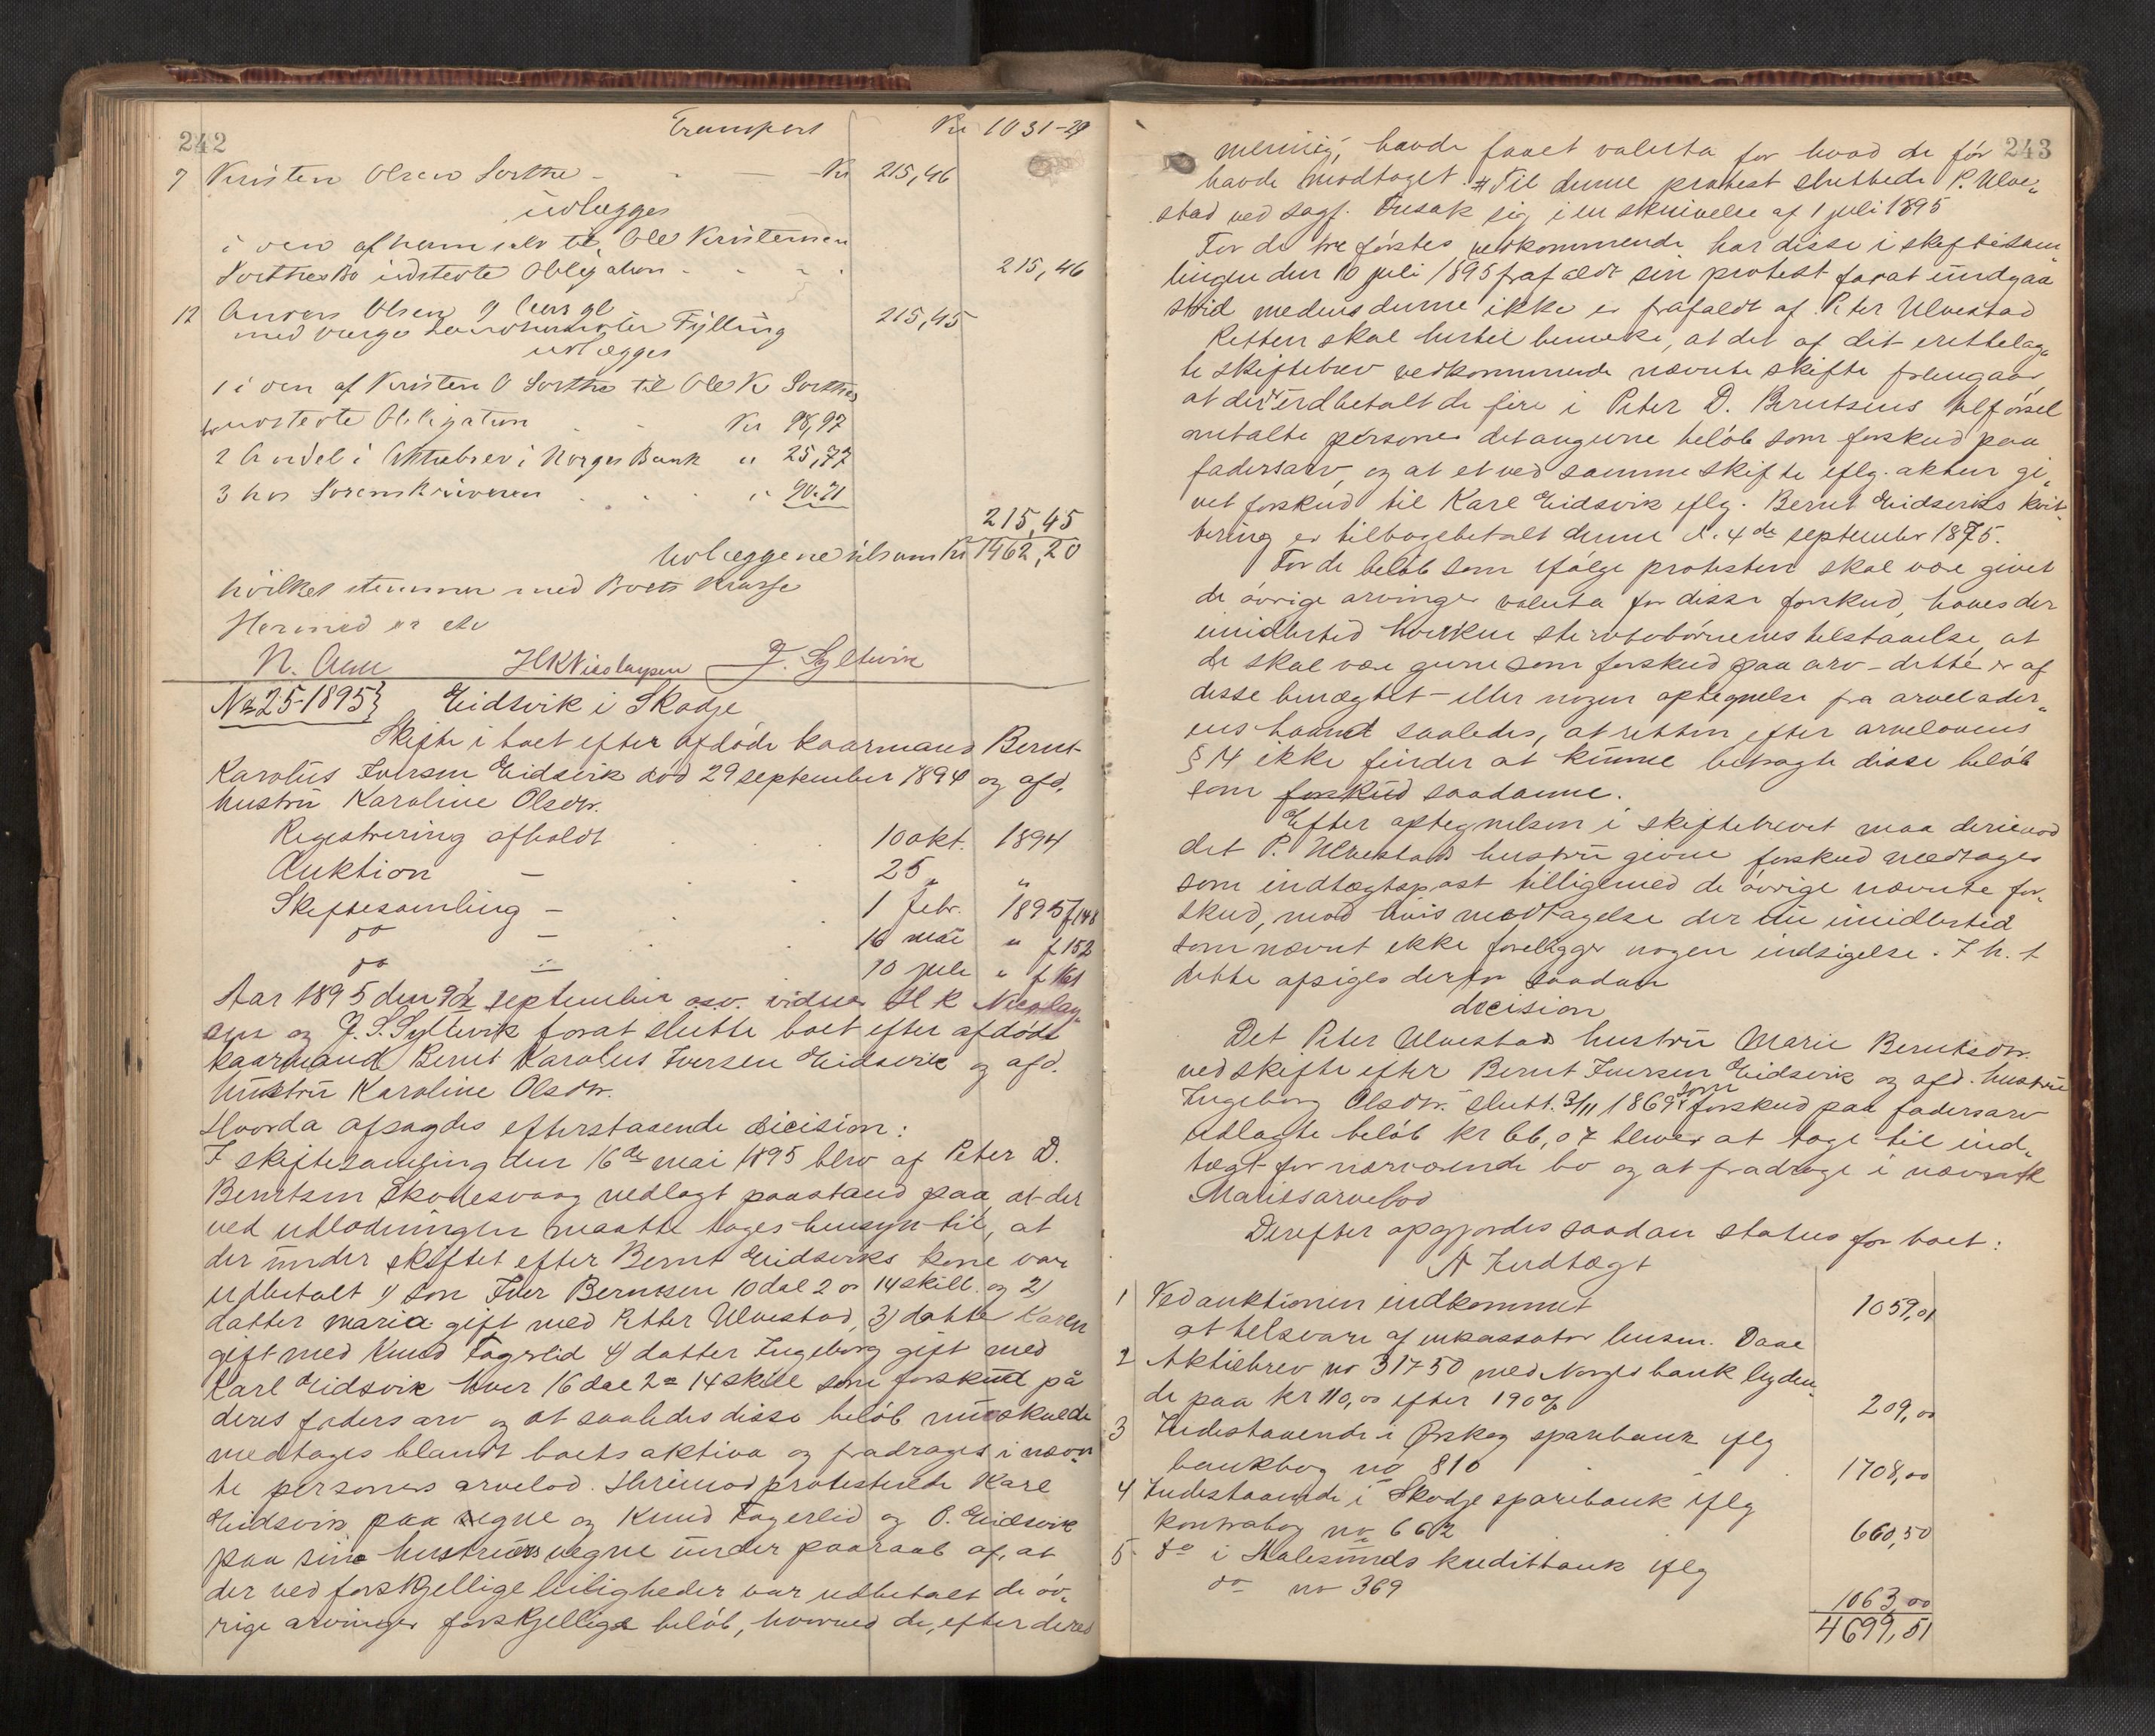 242
Transport Kr 1031-29
7 Kristen Olsen Sorthe - - - Kr 215,46
udlægges
i den af ham selv til Ole Kristensen
Sorthesbø udstedte Obligation - - - 215,46
12 Anders Olsen
med værge Fylling 215,45
udlægges
1 i den af Kristen O Sorthe til Ole K Sorthes
udstedte Obligation Kr 98,97
2 Andel i Aktiebrev i Norges Bank " 25,77
3 hos Sorenskriveren " 90.71
215,45
Udlæggene tilsam Kr 1462,20
hvilket stemmer med Boets Masse
Hermed er etc
N. Aau HKNicolaysen J. Syltevik
No 25-1895} Eidsvik i Skodje
Skifte i boet efter afdøde kaarmand Bernt
Karolus Iversen Eidsvik død 29 september 1894 og afd.
hustru Karoline Olsdtr.
Registrering afholdt . . . 10 okt. 1894
Auktion — . . 25 " "
Skiftesamling — . . 1 febr. 1895 f 148
do — . . 16 mai " f 152
do — 10 juli " f 161
Aar 1895 den 9de september osv. vidner H K Nicolay-
sen og J. S. Syltevik forat slutte boet efter afdøde
kaarmand Bernt Karolus Iversen Eidsvik og afd.
hustru Karoline Olsdtr.
Hvorda afsagdes efterstaaende decision:
I skiftesamling den 16de mai 1895 blev af Peter D.
Berntsen Skodesvaag nedlagt paastand paa, at der
ved udlodningen maatte tages hensyn til, at
der under skiftet efter Bernt Eidsviks kone var
udbetalt 1) søn Iver Berntsen 10 dal 2 o 14 skill. og 2)
datter Maria gift med Petter Ulvestad, 3) datter Karen
gift med Knud Fagerlid 4) datter Ingeborg gift med
Karl Eidsvik hver 16 dal 2 o 14 skill som forskud på
deres fadersarv og at saaledes disse beløb nu skulde
medtages blandt boets aktiva og fradrages i nævn-
te personers arvelod. Herimod protesterede Karl
Eidsvik paa egne og Knud Fagerlid og P. Eidsvik
paa sine hustruers vegne under paaraab af, at
der ved forskjellige leiligheder var udbetalt de øv-
rige arvinger forskjellige beløb, hvorved de, efter deres
243
mening, havde faaet valuta for hvad de før
havde modtaget. Til denne protest sluttede P. Ulve-
stad ved sagf. Fusak sig i en skrivelse af 1 juli 1895
For de tre førstes vedkommende har disse i skiftesam-
lingen den 10 juli 1895 frafaldt sin protest forat undgaa
strid medens denne ikke er frafaldt af Peter Ulvestad
Retten skal hertil bemerke, at det af det fremlag-
te skiftebrev vedkommende nævnte skifte fremgaar,
at der er udbetalt de fire i Peter D. Berntsens tilførsel
omtalte personer det angivne beløb som forskud paa
fadersarv, og at et ved samme skifte iflg. akten gi-
vet forskud til Karl Eidsvik iflg. Bernt Eidsviks kvit-
tering er tilbagebetalt denne d. 4de september 1875.
For de beløb som ifølge protesten skal være givet
de øvrige arvinger valuta for disse forskud, haves der
imidlertid hverken stervbobørnenes tilstaaelse, at
de skal være givne som forskud paa arv - dette er af
disse benægtet - eller nogen optegnelse fra arvelader-
ens haand saaledes, at retten efter arvelovens
§ 14 ikke finder at kunne betragte disse beløb
som forskud saadanne.
Efter optegnelsen i skiftebrevet maa derimod
det P. Ulvestads hustru givne forskud medtages
som indtægtspost tilligemed de øvrige nævnte for-
skud, mod hvis medtagelse der nu imidlertid
som nævnt ikke foreligger nogen indsigelse. I h. t
dette afsiges derfor saadan
decision
Det Peter Ulvestads hustru Marie Berntsdtr.
ved skifte efter Bernt Iversen Eidsvik og afd. hustru
Ingeborg Olsdtr. slutt. 3/11 1869 som forskud paa fadersarv
udlagte beløb kr 66,07 bliver at tage til ind-
tægt for nærværende bo og at fradrage i nævnte
Maries arvelod
Derefter opgjordes saadan status for boet:
A Indtægt
1 Ved auktionen indkommet 1059,01
at tilsvare af inkassator lensm. Daae
2 Aktiebrev no 31750 med Norges bank lyden-
de paa kr 110,00 efter 190% 209,00
3 Indestaaende i Ørskog sparebank iflg
bankbog no 810 1708,00
4 Indestaaende i Skodje sparebank iflg
kontrabog no 662 660,50
5 do i Aalesunds kreditbank iflg
do no 369 1063,00
4699,51